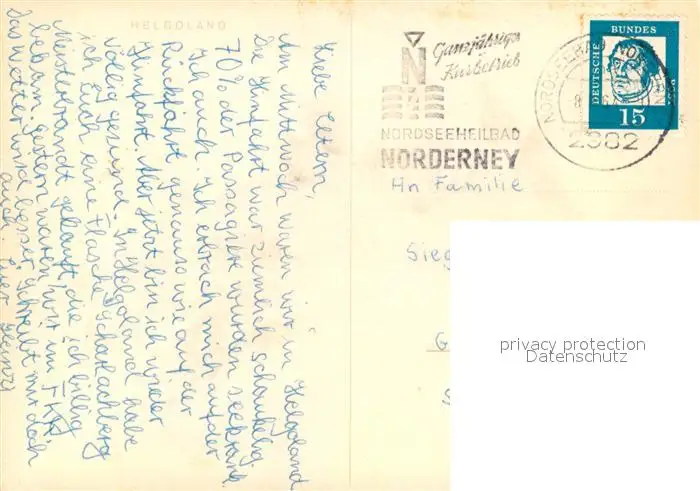 HELGOLAND
Liebe Eltern,
Am Mittwoch waren wir in Helgoland
Die Hinfahrt war ziemlich schaukelig.
70% der Passagiere wurden seekrank
Ich auch. Ich erbrach mich auf der
Rückfahrt genauso wie auf der
Hinfahrt. Aber jetzt bin ich wieder
völlig gesund. In Helgoland habe
ich Euch eine Flasche Scharlachberg
Meisterbrandt gekauft, die ich billig
bekam. Gestern waren wir im FKK
Das Wetter wird besser, schreibt mir doch
auch. Euer
Ganzjähriger
Kurbetrieb
N
NORDSEEHEILBAD
NORDERNEY
NORDSEEBAD NOR
2982
DEUTSCHE
BUNDES
15
An Familie
Sieg
G
S
privacy protection
Datenschutz